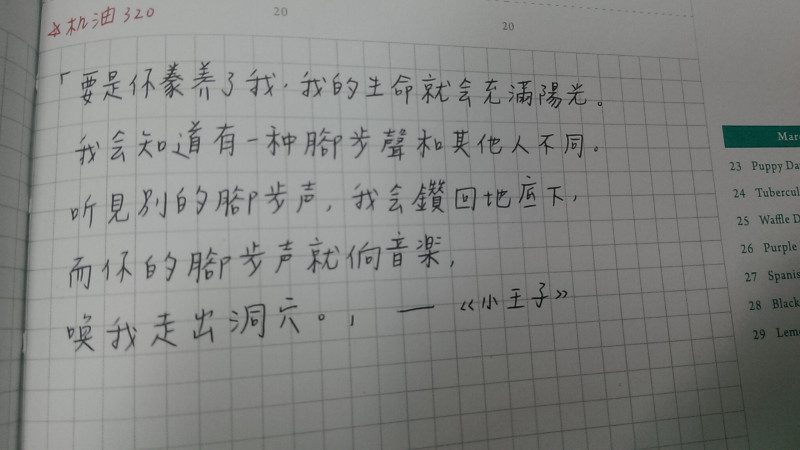 机油 320
20
20
「要是你豢养了我,我的生命就会充满陽光。
我会知道有一种腳步聲和其他人不同。
听見别的腳步声,我会鑽回地底下,
而你的腳步声就像音楽,
喚我走出洞穴。, — 《小王子》
23 Puppy Da
24 Tubercul
25 Waffle D
26 Purple
27 Spanis
28 Black
29 Lem